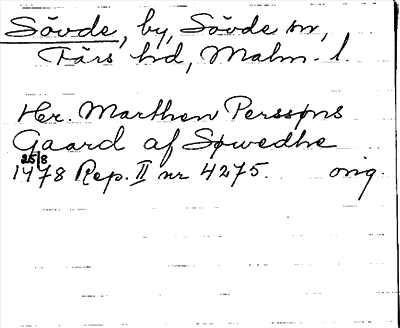 Sövde, by, Sövde sn,
Färs hd, Malm. l.
Her. Marthen Perssøns
Gaard af Søwedhe
25/8
1478 Rep. II nr 4275. orig.